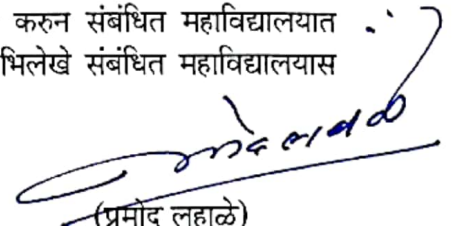 करुन संबंधित महाविद्यालयात
भिलेखे संबंधित महाविद्यालयास
(प्रमोद लहाळे)